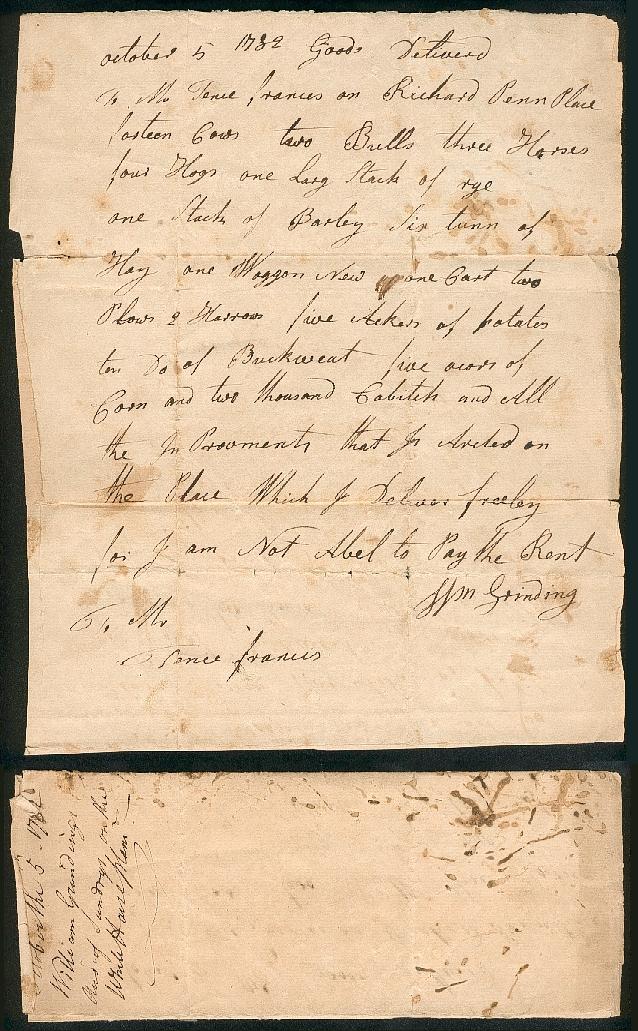 october 5 1782 Goods Deliverd
To Mr Tence francis on Richard Penn Place
forteen Cows two Bulls three Horses
four Hogs one Larg Stack of rye
one Stack of Barley Six tunn of
Hay one Waggon New one Cart two
Plows 2 Harrows five Ackers of potatos
ten Do of Buckweat five acors of
Corn and two thousand Cabitch and All
the In Provments that Is Arcted on
the Place Which I Deliver freeley
for I am Not Abel to Pay the Rent
Wm Grinding
To Mr
Tence francis
October the 5 1782
William Grindings
of Sundrys on the
White House Plan